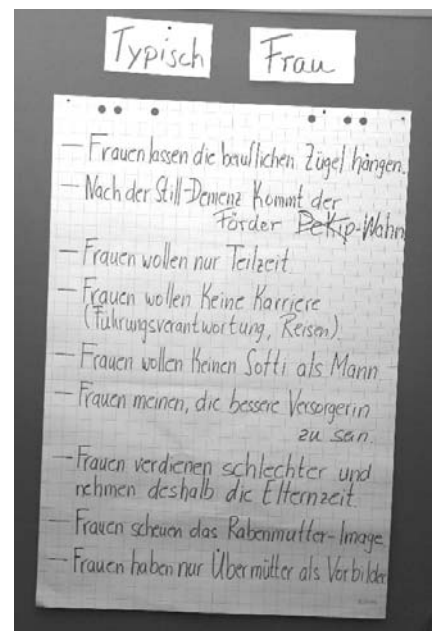 Typisch Frau
– Frauen lassen die beruflichen Zügel hängen.
– Nach der Still-Demenz kommt der
Förder PeKip-Wahn
– Frauen wollen nur Teilzeit.
– Frauen wollen Keine Karriere
(Führungsverantwortung, Reisen).
– Frauen wollen Keinen Softi als Mann
– Frauen meinen, die bessere Versorgerin
zu sein.
– Frauen verdienen schlechter und
nehmen deshalb die Elternzeit.
– Frauen scheuen das Rabenmutter-Image
– Frauen haben nur Übermütter als Vorbilder